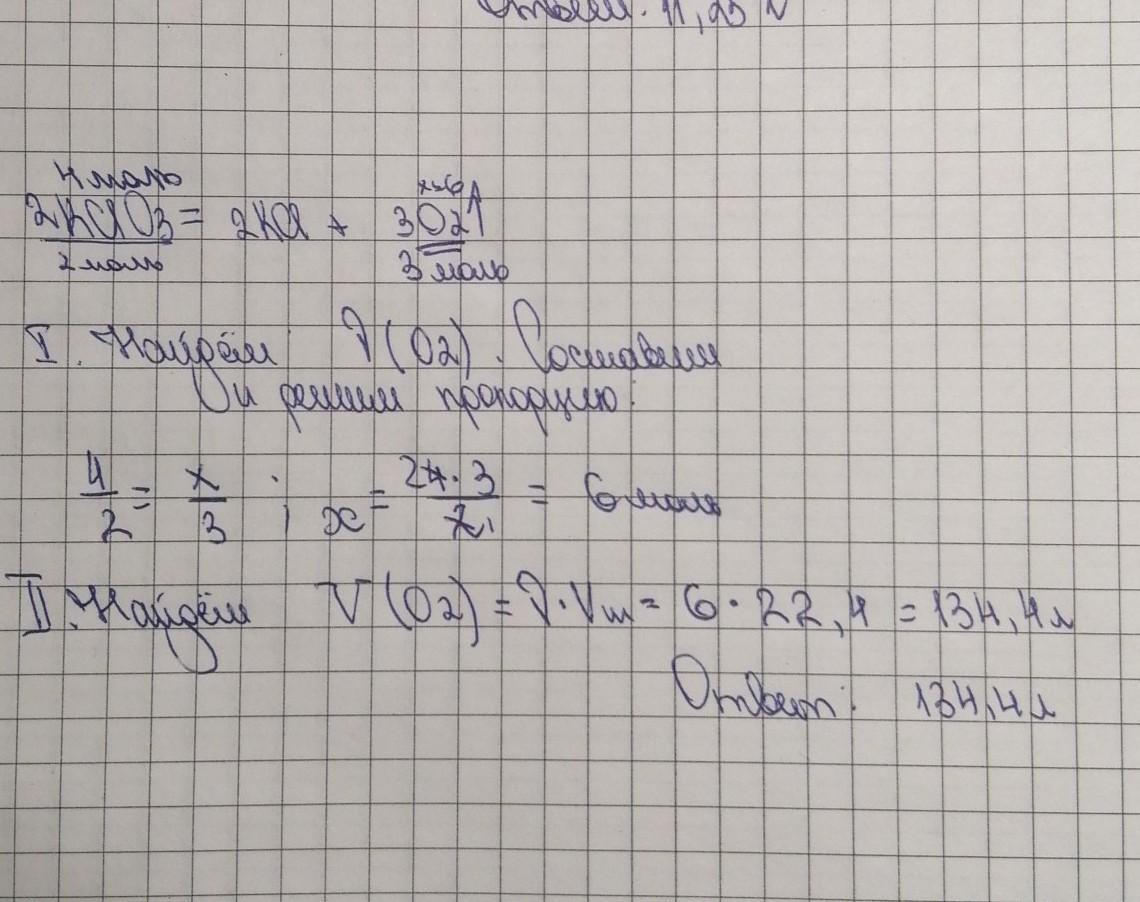 Ответ: 11,23 л
4 моль x=6
2KClO3 = 2KCl + 3O2↑
2 моль 3 моль
I. Найдём ν(O2). Составим
и решим пропорцию:
4/2 = x/3 ; x = 24·3/21 = 6 моль
II. Найдём V(O2) = ν·Vm = 6·22,4 = 134,4 л
Ответ: 134,4 л